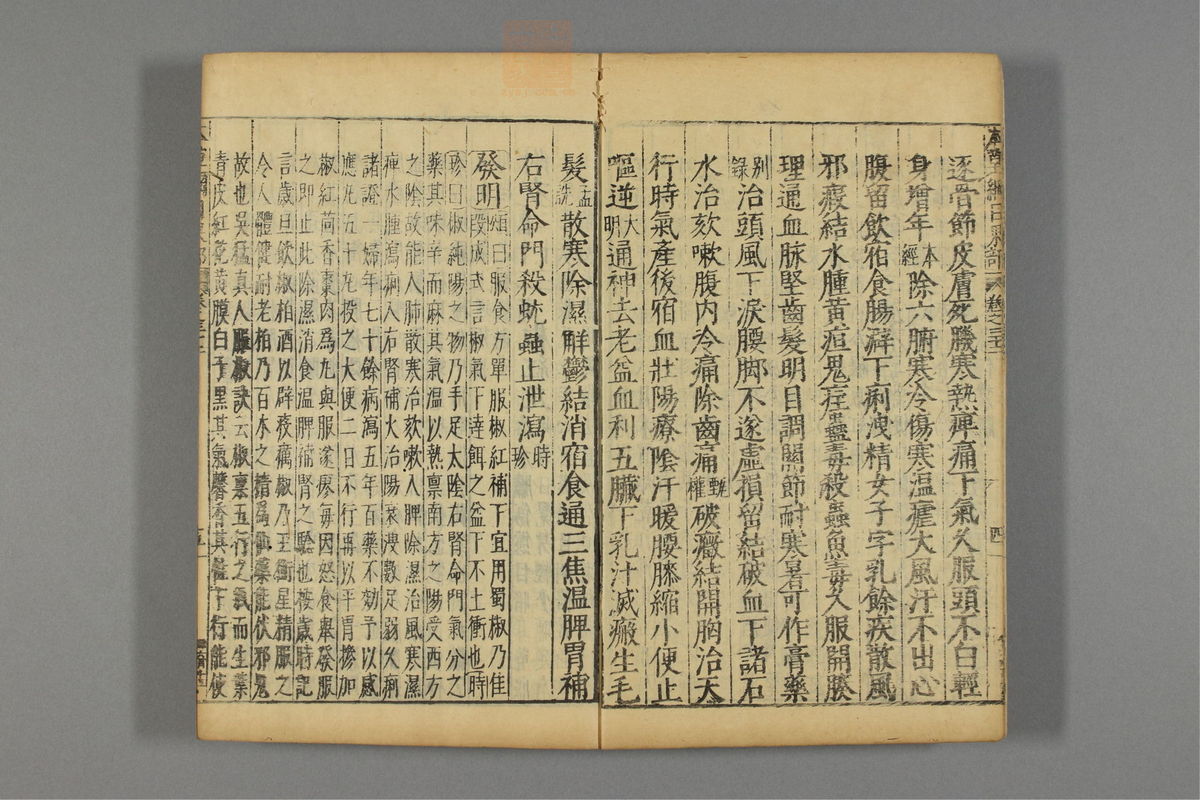 逐骨節皮膚死肌寒熱痹痛下氣久服頭不白輕
身增年本經除六腑寒冷傷寒温瘧大風汗不出心
腹留飲宿食腸澼下痢洩精女子字乳餘疾散風
邪瘕結水腫黃疸鬼疰蠱毒殺蟲魚毒久服開腠
理通血脉堅齒髮明目調關節耐寒暑可作膏藥
别錄治頭風下淚腰脚不遂虛損留結破血下諸石
水治欬嗽腹内冷痛除齒痛甄權破癥結開胸治天
行時氣產後宿血壯陽療陰汗暖腰膝縮小便止
嘔逆大明通神去老益血利五臟下乳汁滅瘢生毛
髮孟詵散寒除濕解鬱結消宿食通三焦温脾胃補
右腎命門殺蚘蟲止泄瀉時珍
發明頌曰服食方單服椒紅補下宜用蜀椒乃佳
段成式言椒氣下達餌之益下不上衝也時
珍曰椒純陽之物乃手足太陰右腎命門氣分之
藥其味辛而麻其氣温以熱禀南方之陽受西方
之陰故能入肺散寒治欬嗽入脾除濕治風寒濕
痺水腫瀉痢入右腎補火治陽衰溲數足弱久痢
諸證一婦年七十餘病瀉五年百藥不効予以感
應丸五十丸投之大便二日不行再以平胃散加
椒紅茴香棗肉爲丸與服遂瘳每因怒食舉發服
之即止此除濕消食温脾補腎之驗也按歲時記
言歲旦飲椒柏酒以辟疫癘椒乃玉衡星精服之
令人體健耐老柏乃百木之精爲仙藥能伏邪鬼
故也吳猛真人服椒訣云椒禀五行之氣而生葉
青皮紅花黃膜白子黑其氣馨香其性下行能使